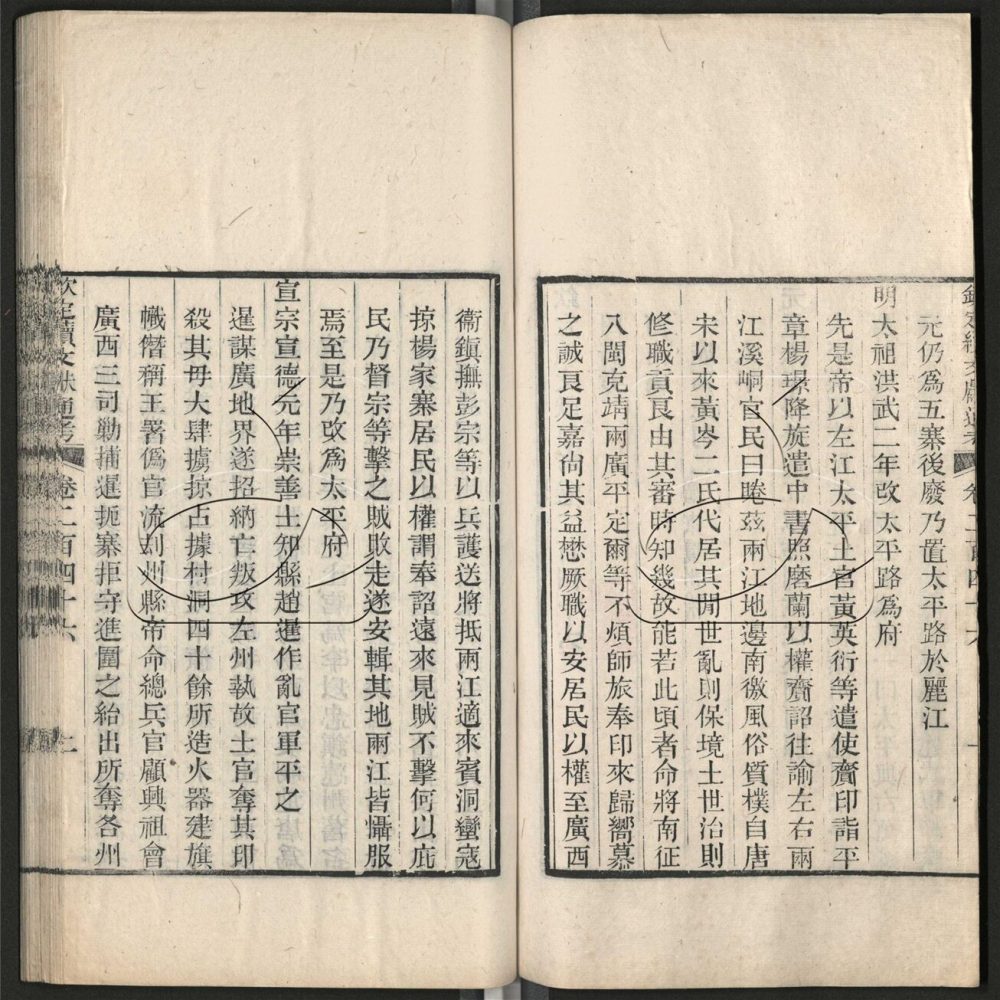 欽定續文獻通考 卷二百四十六
元仍爲五寨後廢乃置太平路於麗江
明太祖洪武二年改太平路爲府
先是帝以左江太平土官黃英衍等遣使齎印詣平
章楊璟降旋遣中書照磨蘭以權齎詔往諭左右兩
江溪峒官民曰睠茲兩江地邊南徼風俗質樸自唐
宋以來黃岑二氏代居其間世亂則保境土世治則
修職貢良由其審時知幾故能若此頃者命將南征
八閩克靖兩廣平定爾等不煩師旅奉印來歸嚮慕
之誠良足嘉尚其益懋厥職以安居民以權至廣西
衞鎮撫彭宗等以兵護送將抵兩江適來賓洞蠻寇
掠楊家寨居民以權謂奉詔遠來見賊不擊何以庇
民乃督宗等擊之賊敗走遂安輯其地兩江皆懾服
焉至是乃改爲太平府
宣宗宣德元年崇善土知縣趙暹作亂官軍平之
暹謀廣地界遂招納亡叛攻左州執故土官奪其印
殺其毋大肆擄掠占據村洞四十餘所造火器建旗
幟僭稱王署僞官流刦州縣帝命總兵官顧興祖會
廣西三司勦捕暹扼寨拒守進圍之紿出所奪各州
欽定續文獻通考 卷二百四十六 二